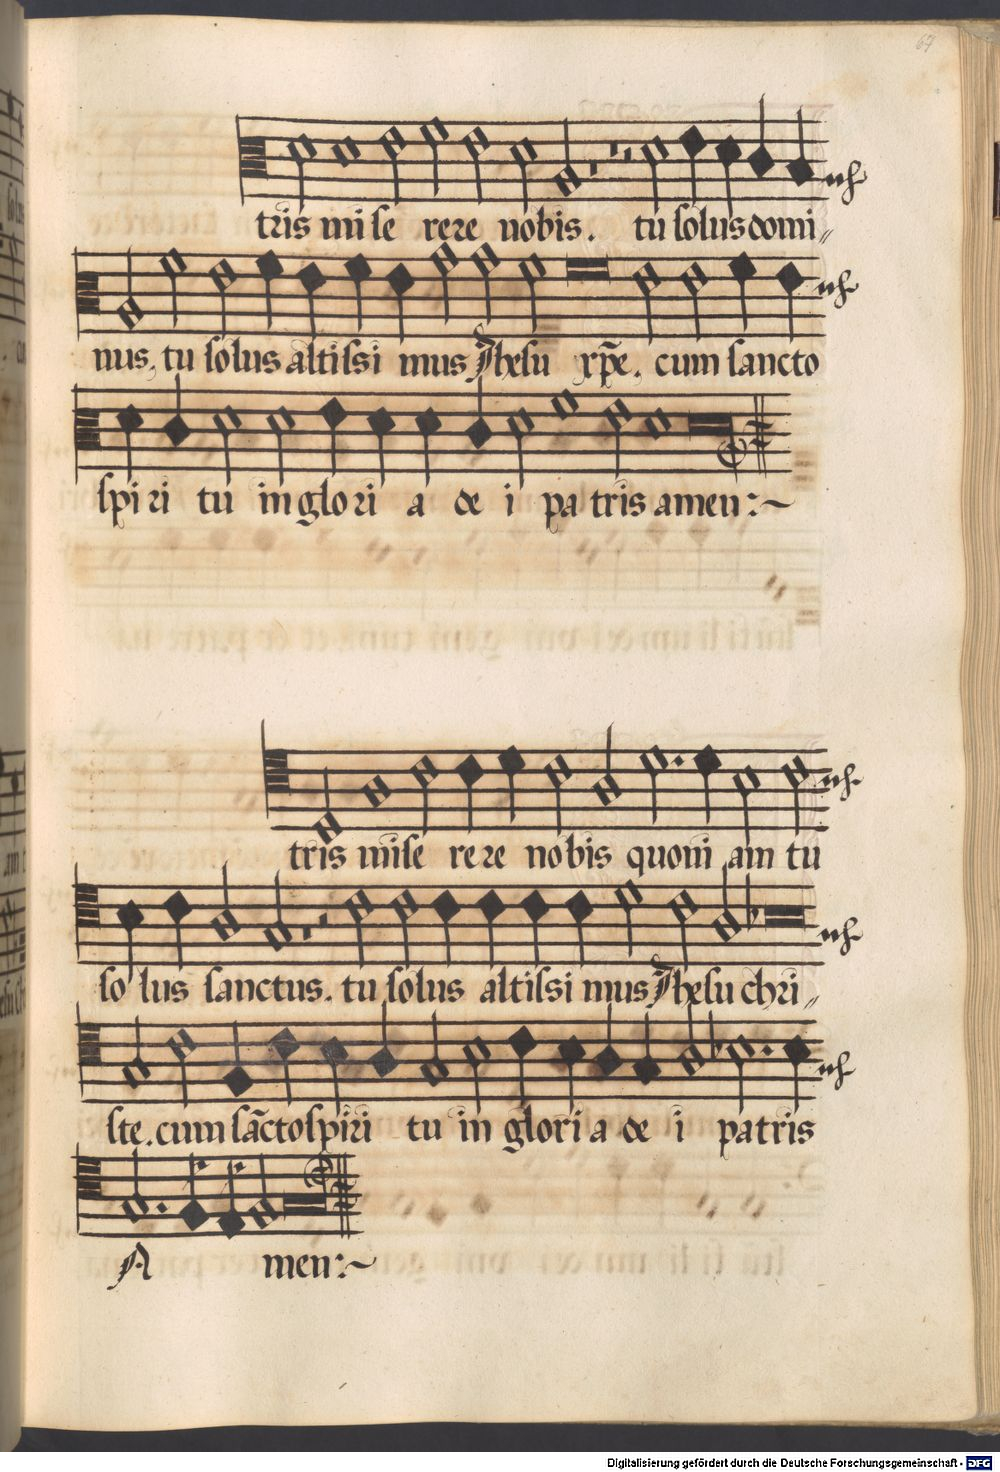 67
tris mi se re re nobis . tu solus domi„
nus, tu solus altissi mus Jhesu xp̄e. cum sancto
spi ri tu in glo ri a de i pa tris amen :~
tris mi se re re no bis quoni am tu
so lus sanctus. tu solus altissi mus Jhesu chri„
ste. cum sācto spi ri tu in glori a de i patris
A men :~
Digitalisierung gefördert durch die Deutsche Forschungsgemeinschaft - DFG